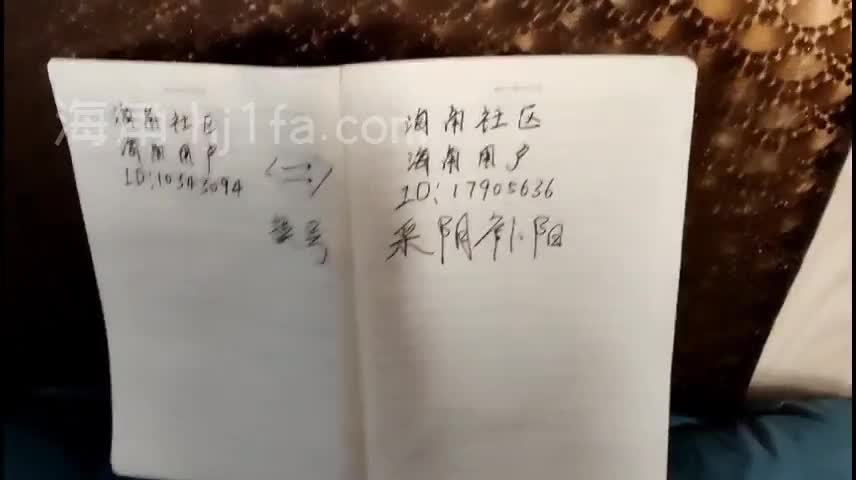 海角社区
海角用户
ID:10343094
海角社区
海角用户
ID:17905636
签号
采阴补阳
海角hj1fa.com